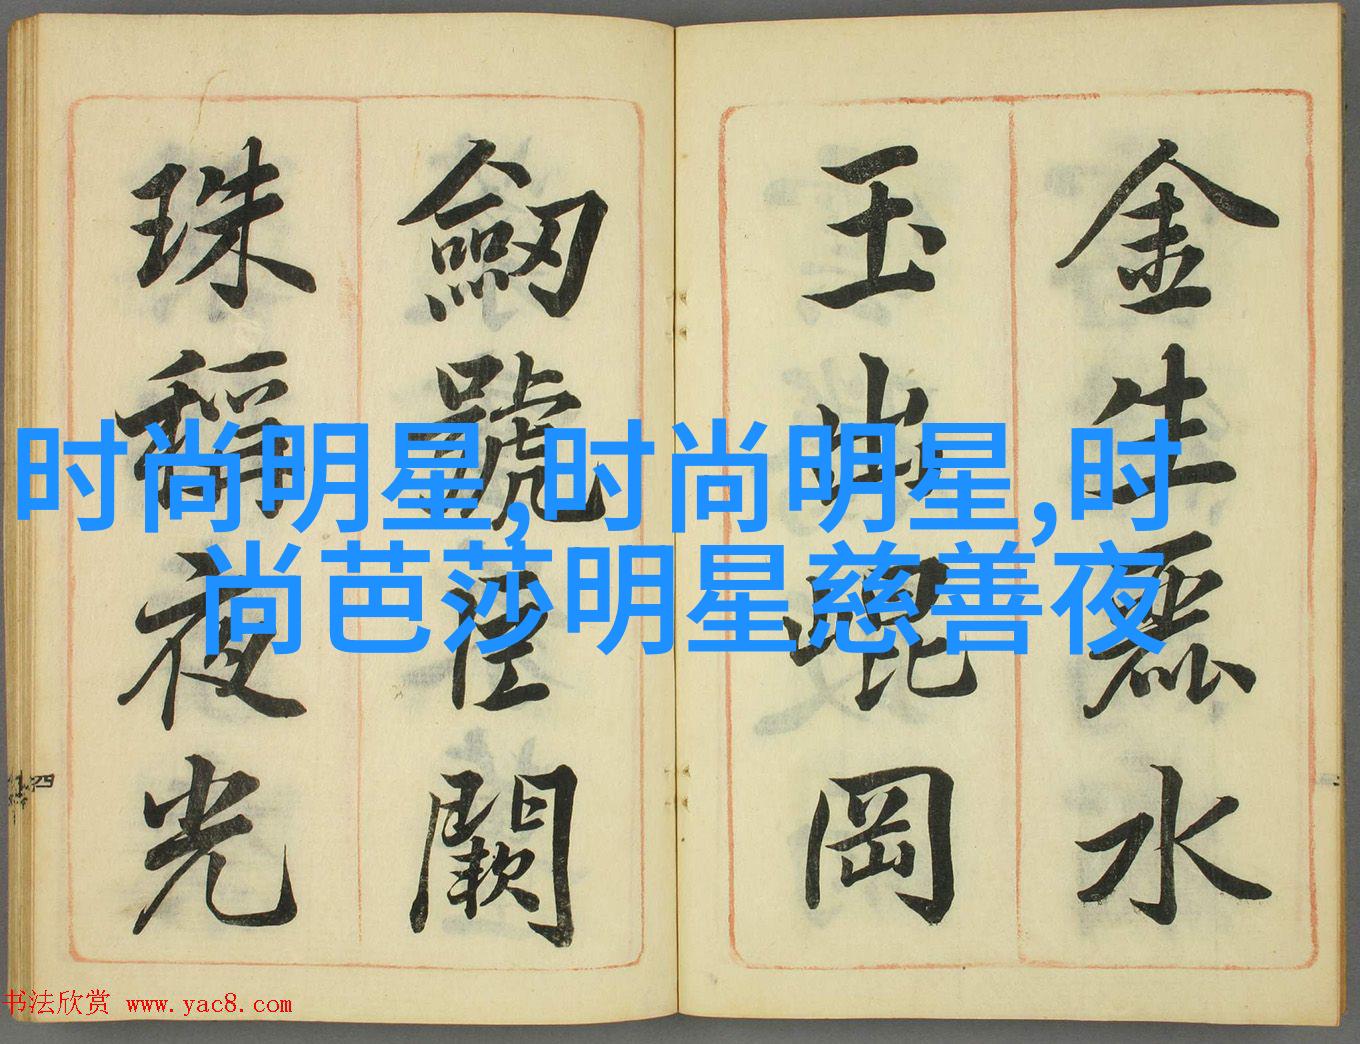 金生麗水
玉出崐岡
劔號巨闕
珠稱夜光
时尚明星,时尚明星,时
尚芭莎明星慈善夜
四
书法欣赏 www.yac8.com